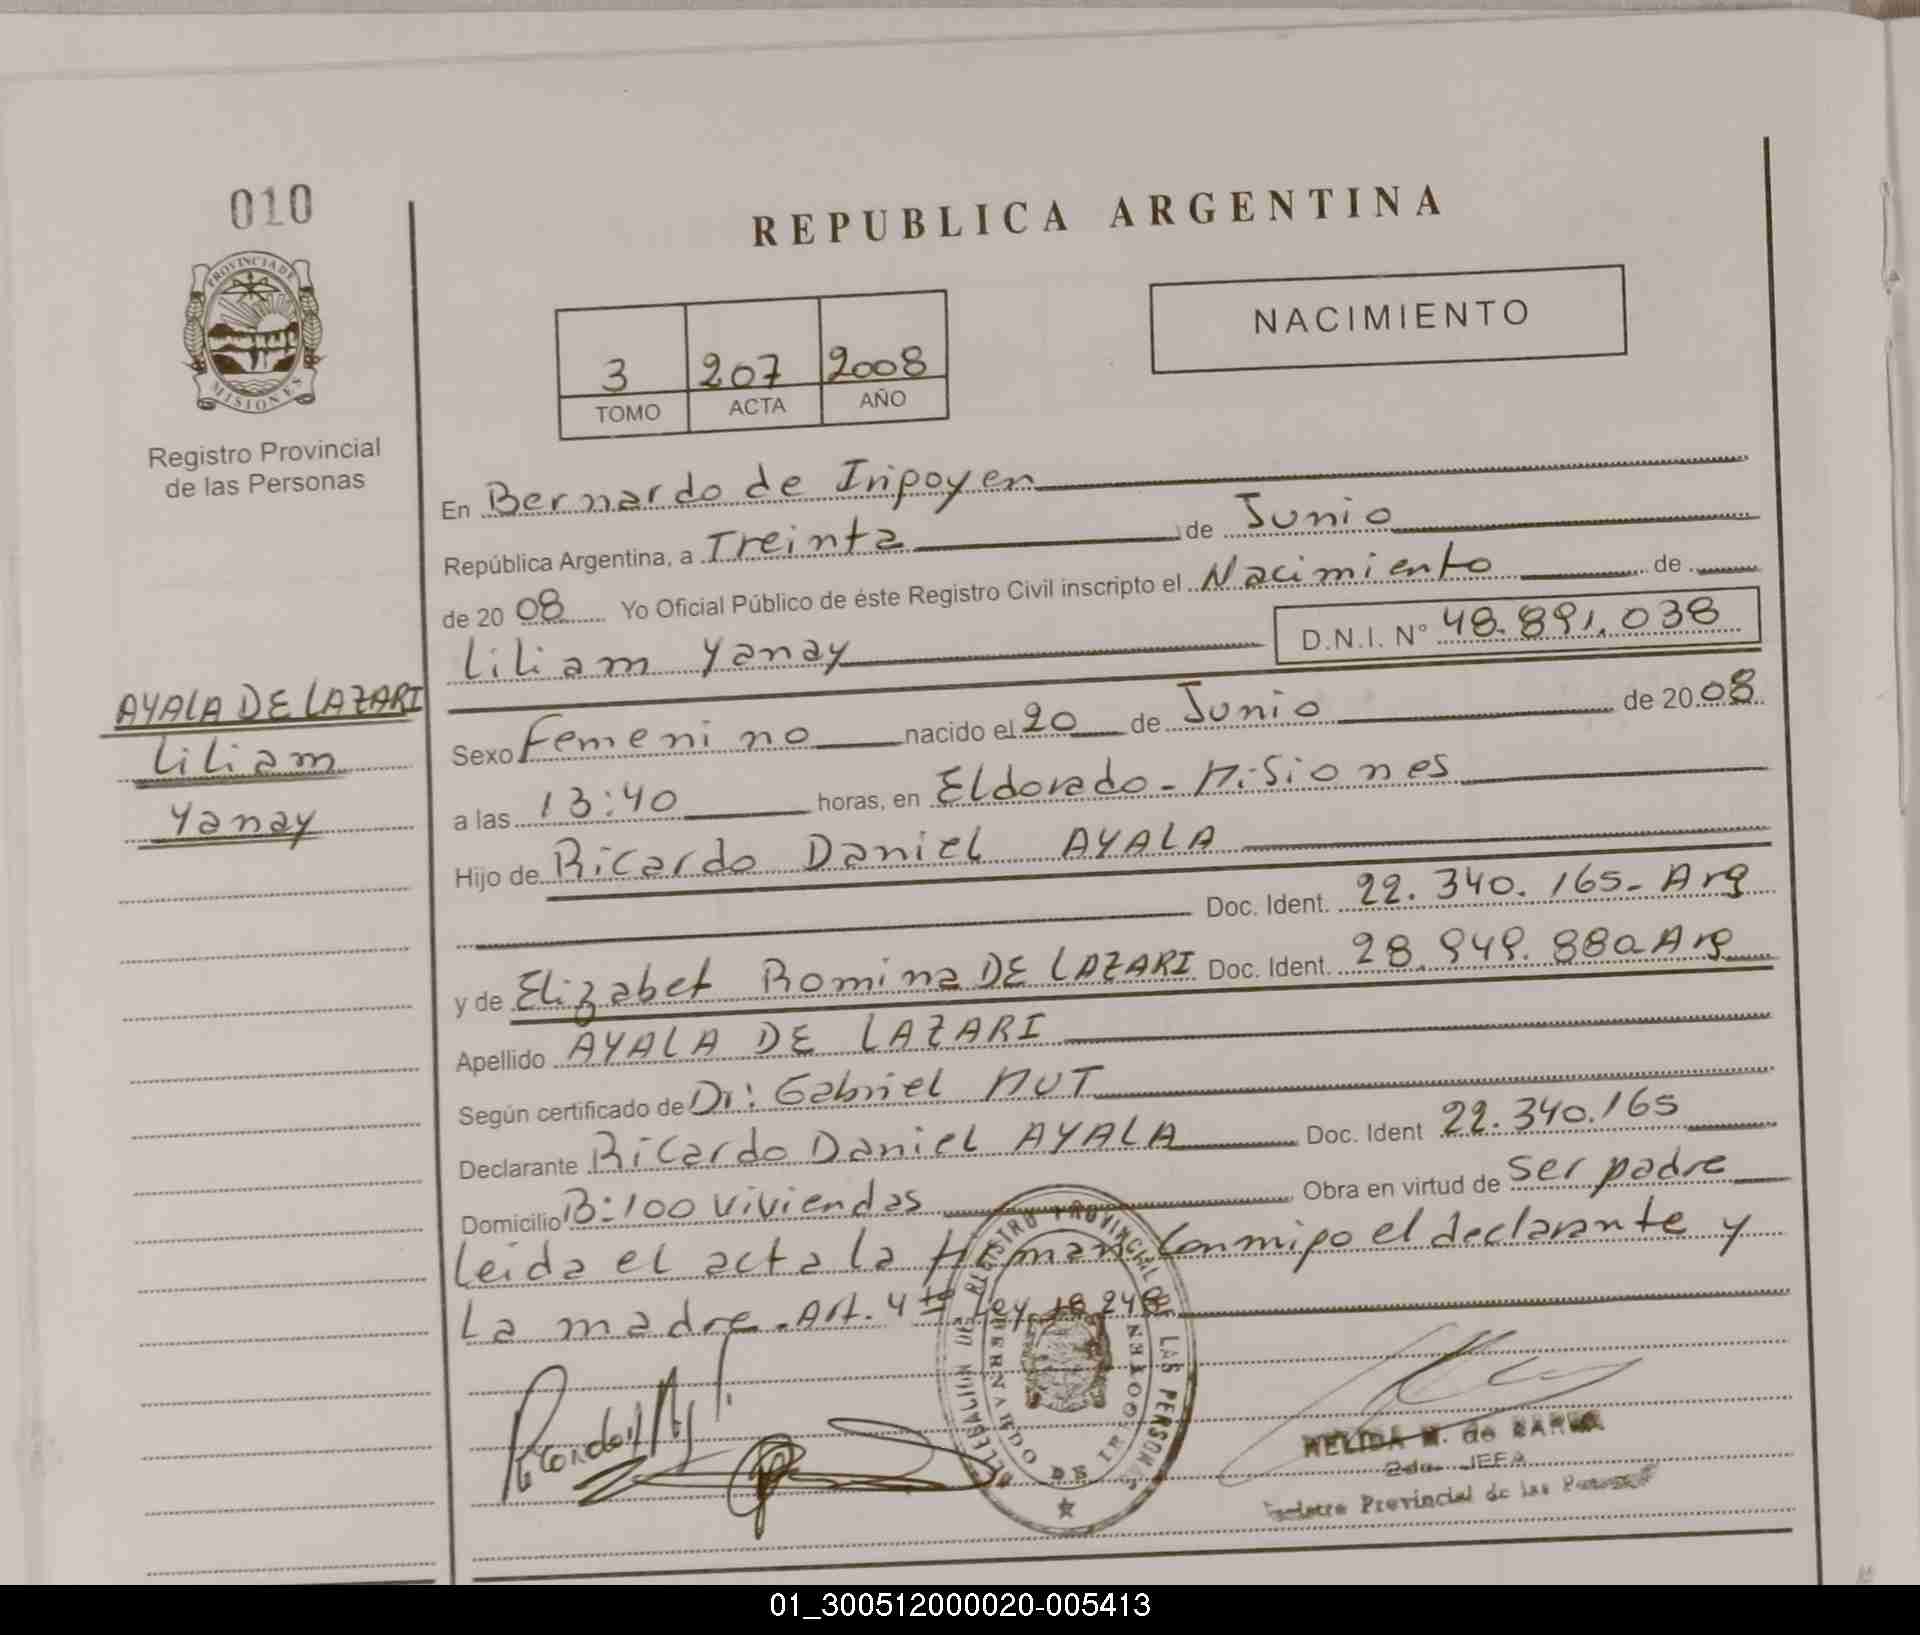 010
PROVINCIA DE
MISIONES
Registro Provincial
de las Personas
AYALA DE LAZARI
Liliam
Yanay
REPUBLICA ARGENTINA
3 207 2008
TOMO ACTA AÑO
NACIMIENTO
En Bernardo de Iripoyen
República Argentina, a Treinta de Junio
de 20 08 Yo Oficial Público de éste Registro Civil inscripto el Nacimiento de
Liliam Yanay D.N.I. N° 48.891.038
Sexo Femenino nacido el 20 de Junio de 20 08
a las 13:40 horas, en Eldorado - Misiones
Hijo de Ricardo Daniel AYALA
Doc. Ident. 22.340.165- Arg
y de Elizabet Romina DE LAZARI Doc. Ident. 28.949.880 Arg
Apellido AYALA DE LAZARI
Según certificado de Dr: Gabriel MUT
Declarante Ricardo Daniel AYALA Doc. Ident 22.340.165
Domicilio B: 100 viviendas Obra en virtud de ser padre
Leida el acta la firman conmipo el declarante y
La madre. Art. 4to Ley 18.248
DELEGACION DEL REGISTRO PROVINCIAL DE LAS PERSONAS
BERNARDO DE IRIGOYEN
NELIDA M. de
2da. JEFA
Provincial de las
01_300512000020-005413